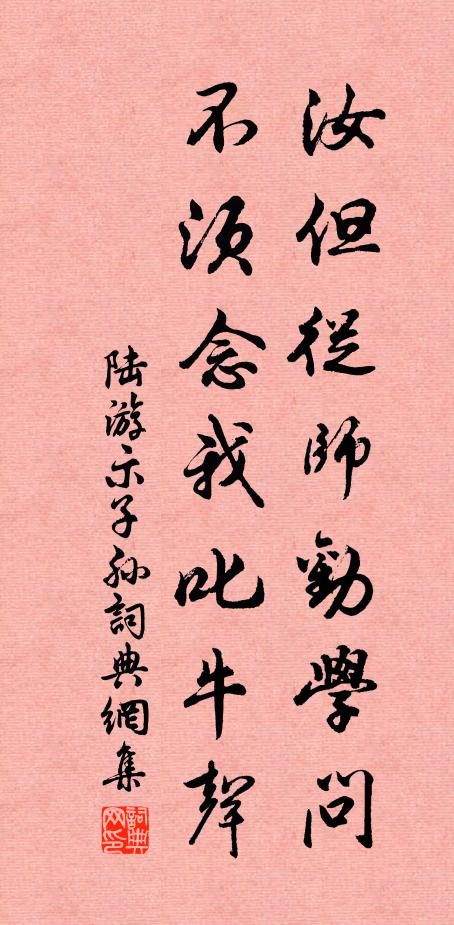 汝但從師勤學問
不須念我叱牛聲
陸游示子孫詞典網集
詞典网印